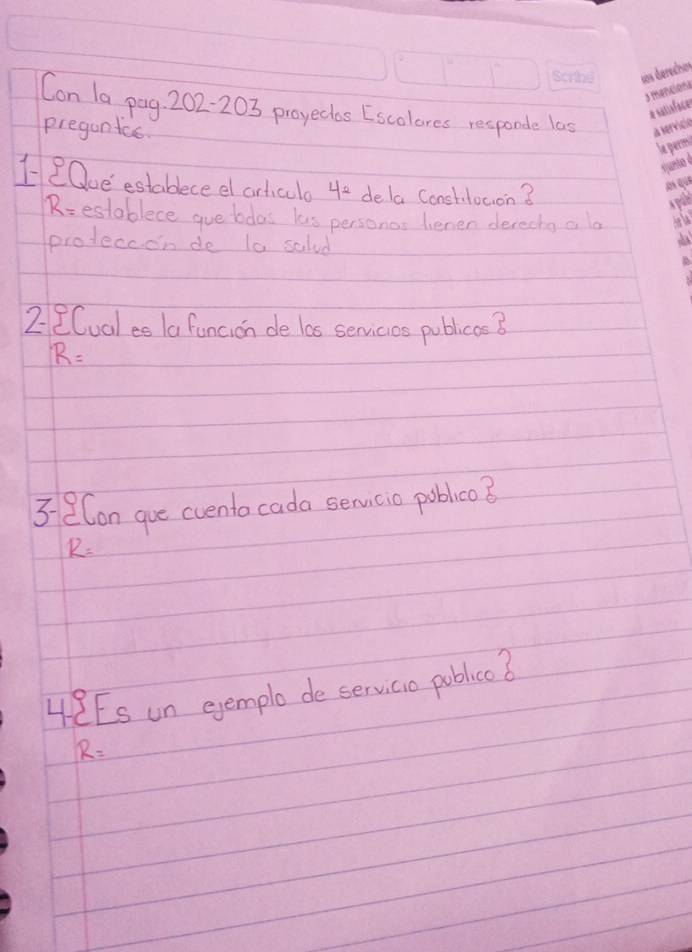 Scribe
Con la pag. 202-203 proyectos Escolares responde las
preguntas.
1- ¿Qué establece el articulo 4º de la Constitucion?
R= establece que todas las personas tienen derecho a la
protección de la salud
2- ¿Cual es la función de los servicios publicos?
R=
3- ¿Con que cuenta cada servicio público?
R=
4- ¿Es un ejemplo de servicio publico?
R=